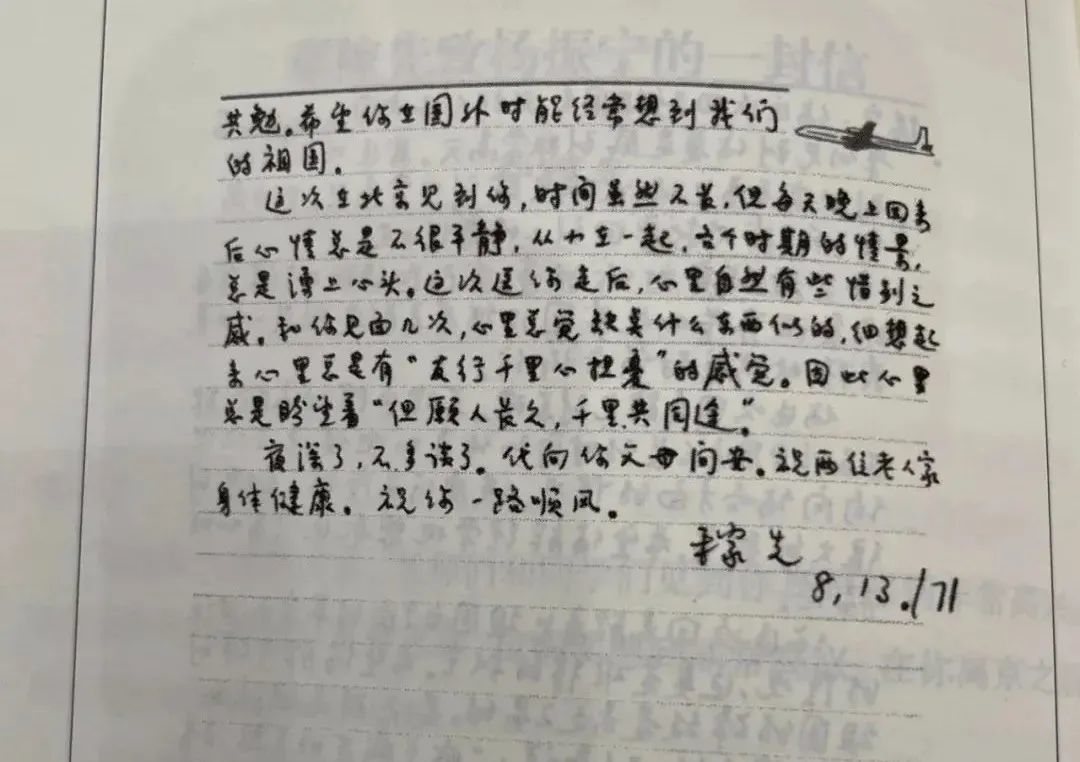 的一封信
共勉。希望你在国外时能经常想到我们
的祖国。
这次在北京见到你,时间虽然不长,但每天晚上回来
后心情总是不很平静,从小在一起,各个时期的情景,
总是涌上心头。这次送你走后,心里自然有些惜别之
感。和你见面几次,心里总觉缺点什么东西似的,细想起
来心里总是有“友行千里心担憂”的感觉。因此心里
总是盼望着“但愿人长久,千里共同途。”
夜深了,不多谈了。代向你父母问安。祝两位老人家
身体健康。祝你一路顺风。
稼先
8,13./71
在你离京之